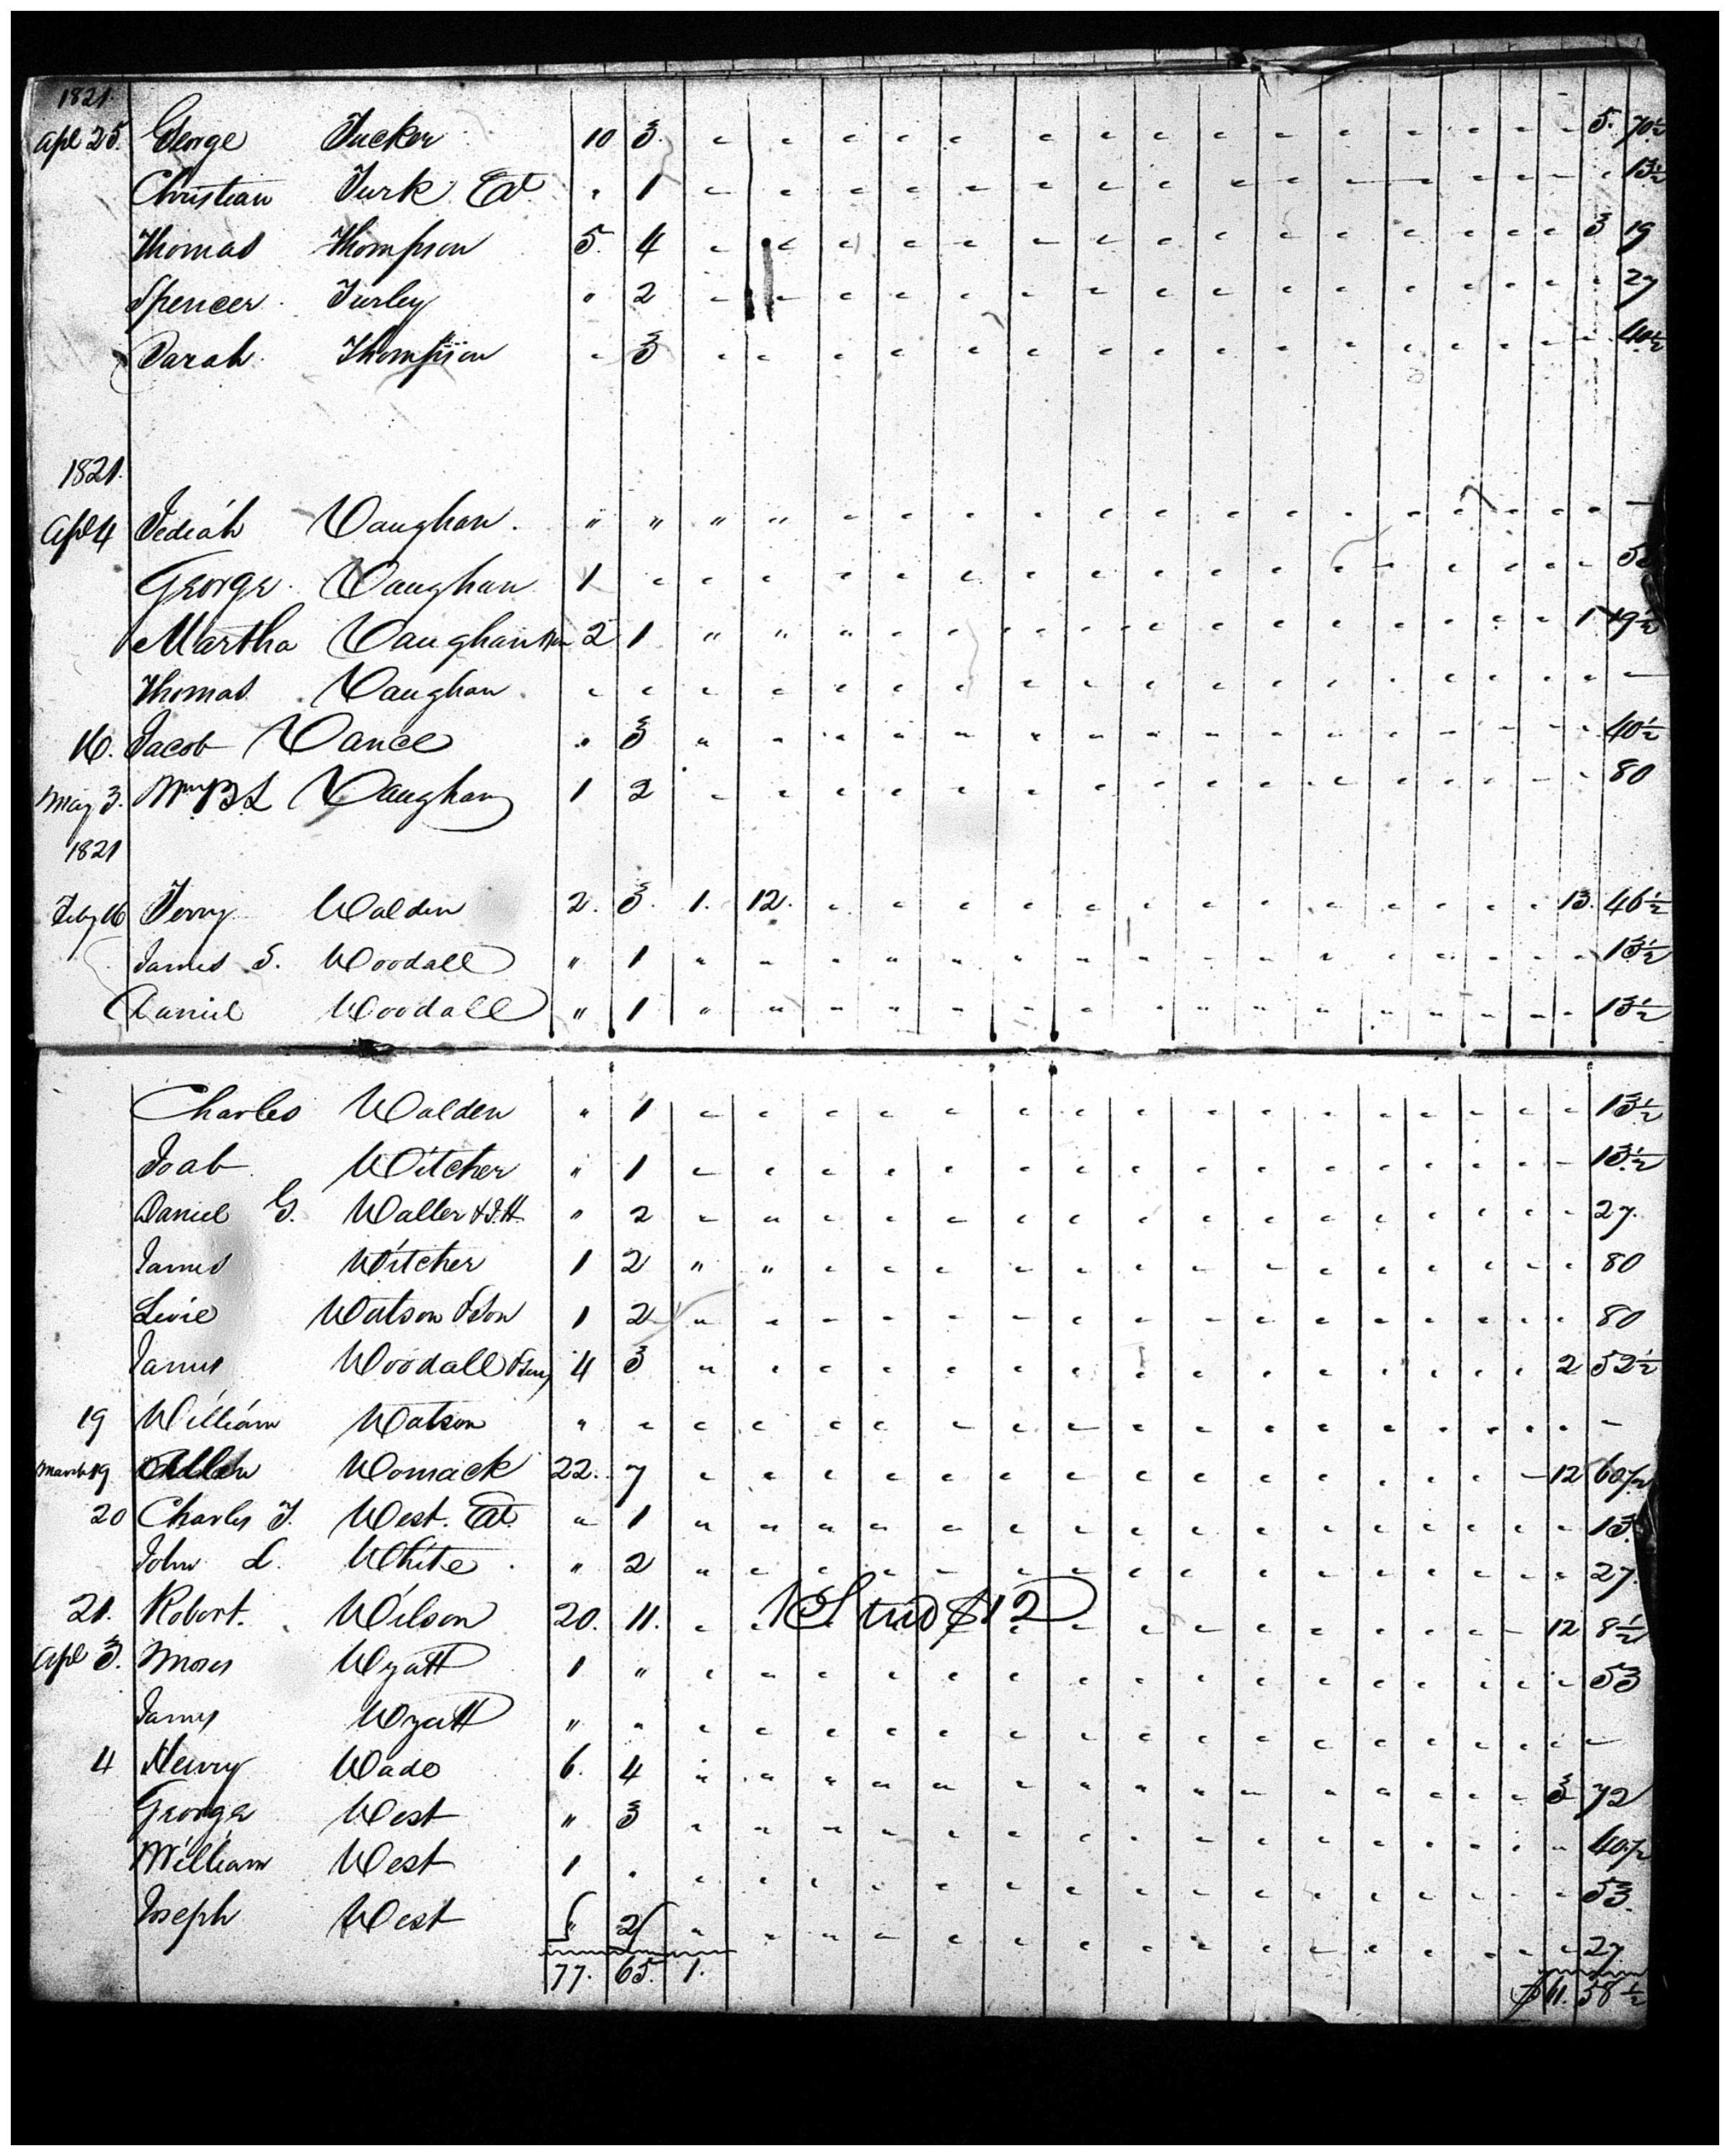 1821.
Apl 25. George Tucker 10 3. " " " " " " " " " " " " " " 5. 70½
Christian Turk Est " 1 " " " " " " " " " " " " " " " 13½
Thomas Thompson 5. 4 " " " " " " " " " " " " " " 3 19
Spencer Turley " 2 " " " " " " " " " " " " " " " 27
Sarah Thompson " 3 " " " " " " " " " " " " " " " 40½
1821.
Apl 4 Jediah Vaughan. " " " " " " " " " " " " " " " " " —
George Vaughan 1 " " " " " " " " " " " " " " " "
Martha Vaughan 2 1 " " " " " " " " " " " " " " 1 19½
Thomas Vaughan " " " " " " " " " " " " " " " " " —
16. Jacob Vance " 3 " " " " " " " " " " " " " " " 40½
May 3. Wm B L Vaughan 1 2 " " " " " " " " " " " " " " " 80
1821
Feby 16 Jerry Walden 2. 3. 1. 12. " " " " " " " " " " " " 13. 46½
James S. Woodall " 1 " " " " " " " " " " " " " " " 13½
Daniel Woodall " 1 " " " " " " " " " " " " " " " 13½
Charles Walden " 1 " " " " " " " " " " " " " " " 13½
Joab Witcher " 1 " " " " " " " " " " " " " " " 13½
Daniel G. Waller & J.H " 2 " " " " " " " " " " " " " " " 27.
James Witcher 1 2 " " " " " " " " " " " " " " " 80
Watson & Son 1 2 " " " " " " " " " " " " " " " 80
James Woodall 4 3 " " " " " " " " " " " " " " 2 52½
19 William Watson " " " " " " " " " " " " " " " " " —
March 19 Allen Womack 22. 7 " " " " " " " " " " " " " " 12 60½
20 Charles T. West. Est. " 1 " " " " " " " " " " " " " " " 13
John L. White " 2 " " " " " " " " " " " " " " " 27.
21. Robert. Wilson 20. 11. " " 1 Stud $12 " " " " " " " " 12 8½
Apl 3. Moses Wyatt 1 " " " " " " " " " " " " " " " " 53
James Wyatt " " " " " " " " " " " " " " " " " —
4 Henry Wade 6. 4 " " " " " " " " " " " " " " 3 72
George West " 3 " " " " " " " " " " " " " " " 40½
William West 1 " " " " " " " " " " " " " " " " 53.
Joseph West " 2 " " " " " " " " " " " " " " " 27
77. 65. 1. $61. 58½